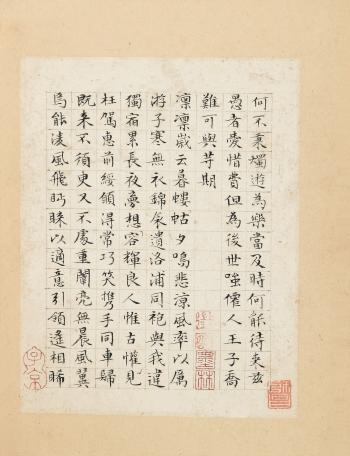 何不秉燭遊為樂當及時何能待來茲
愚者愛惜費但為後世嗤僊人王子喬
難可與等期
凜凜歲云暮螻蛄夕鳴悲涼風率以厲
游子寒無衣錦衾遺洛浦同袍與我違
獨宿累長夜夢想容輝良人惟古懽見
枉駕惠前綏領得常巧笑携手同車歸
既来不須臾又不處重闈亮無晨風翼
焉能淩風飛眄睞以適意引領遙相睎
子京